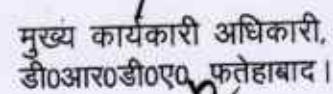 मुख्य कार्यकारी अधिकारी,
डी0आर0डी0ए0, फतेहाबाद।